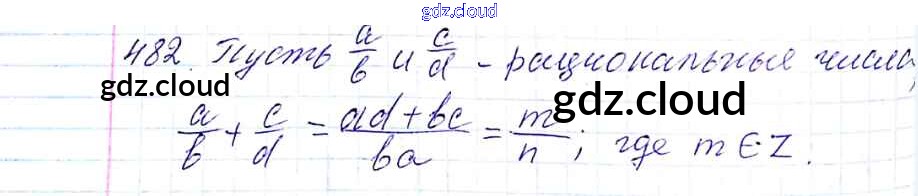 gdz.cloud
482. Пусть a/b и c/d - рациональные числа,
gdz.cloud
gdz.cloud
a/b + c/d = ad+bc/ba = m/n; где m ∈ Z.